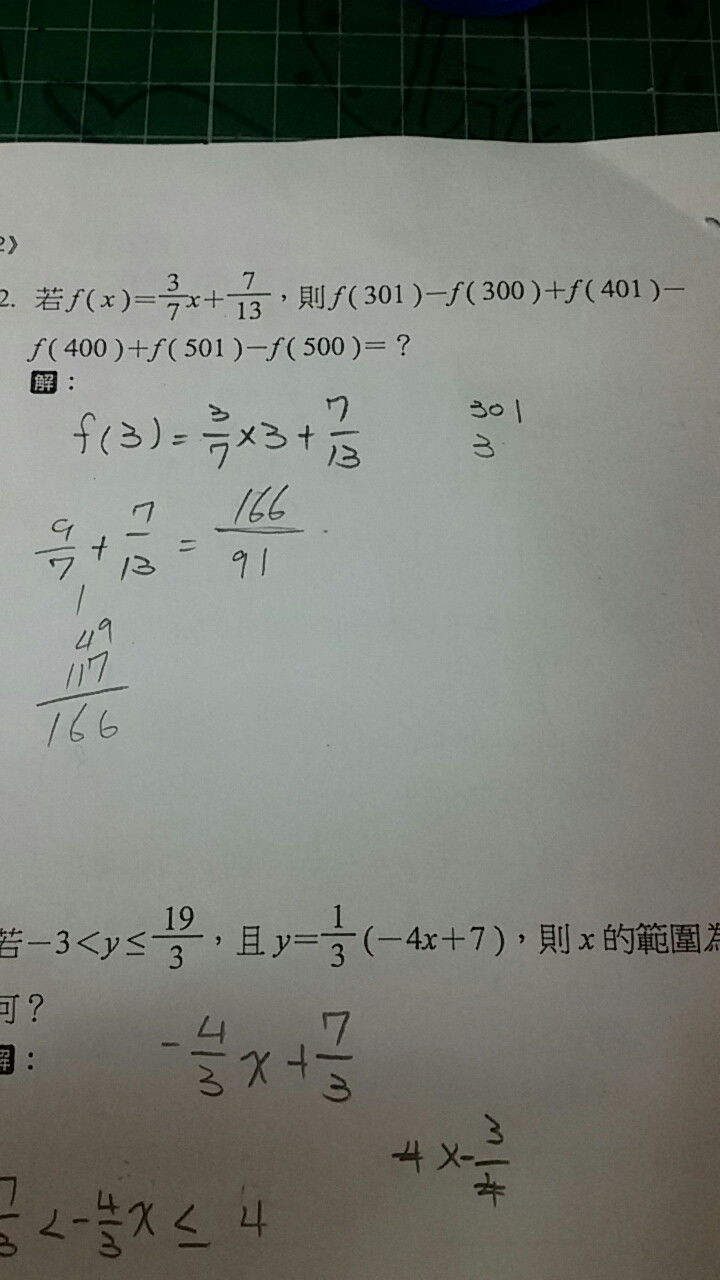 2》
2. 若f(x)=3/7x+7/13，則f(301)−f(300)+f(401)−
f(400)+f(501)−f(500)=？
解：
f(3)=3/7×3+7/13
301
3
9/7+7/13=166/91
1
49
117
166
若−3<y≤19/3，且y=1/3(−4x+7)，則x的範圍為
何？
解：
-4/3x+7/3
4×-3/4
7/3<-4/3x≤4